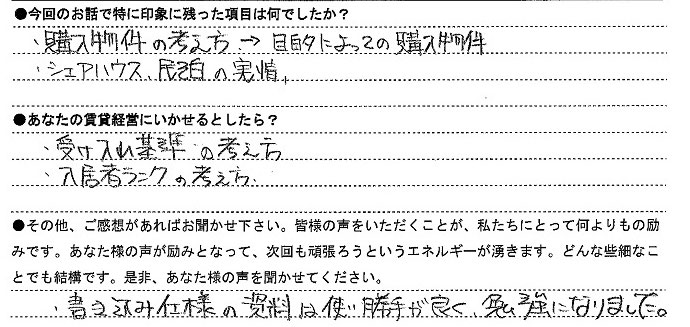 ●今回のお話で特に印象に残った項目は何でしたか？
・購入物件の考え方 → 目的によっての購入物件
・シェアハウス、民泊の実情。
●あなたの賃貸経営にいかせるとしたら？
・受け入れ基準の考え方
・入居者ランクの考え方.
●その他、ご感想があればお聞かせ下さい。皆様の声をいただくことが、私たちにとって何よりもの励
みです。あなた様の声が励みとなって、次回も頑張ろうというエネルギーが湧きます。どんな些細なこ
とでも結構です。是非、あなた様の声を聞かせてください。
・書き込み仕様の資料は使い勝手が良く、勉強になりました。